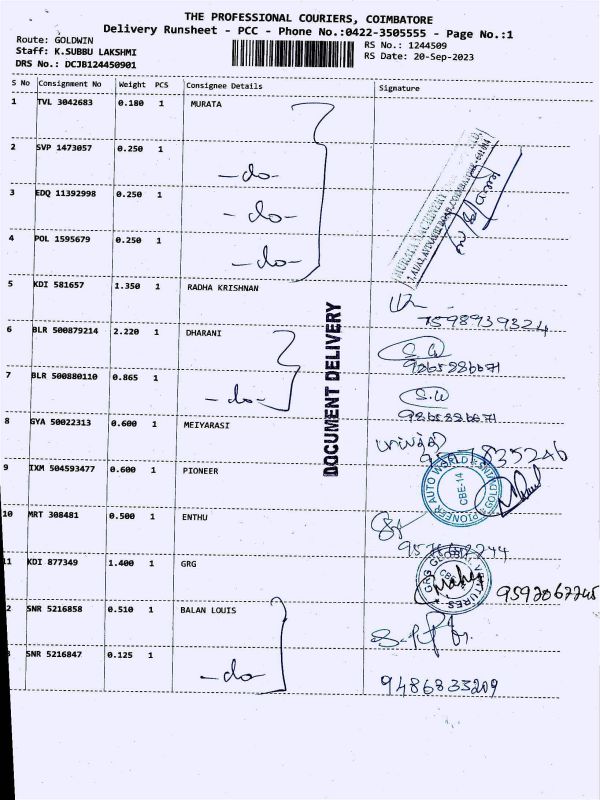 THE PROFESSIONAL COURIERS, COIMBATORE
Delivery Runsheet - PCC - Phone No.:0422-3505555 - Page No.:1
Route: GOLDWIN
Staff: K.SUBBU LAKSHMI
DRS No.: DCJB124450901
RS No.: 1244509
RS Date: 20-Sep-2023
S No Consignment No Weight PCS Consignee Details Signature
1 TVL 3042683 0.180 1 MURATA
2 SVP 1473057 0.250 1 -do-
3 EDQ 11392998 0.250 1 -do-
4 POL 1595679 0.250 1 -do-
5 KDI 581657 1.350 1 RADHA KRISHNAN
7598939324
6 BLR 500879214 2.220 1 DHARANI
9865886671
7 BLR 500880110 0.865 1 -do-
9865886671
DOCUMENT DELIVERY
8 GYA 50022313 0.600 1 MEIYARASI
9 IXM 504593477 0.600 1 PIONEER
PIONEER AUTO WORLD
CBE-14
10 MRT 308481 0.500 1 ENTHU
11 KDI 877349 1.400 1 GRG
9592067245
2 SNR 5216858 0.510 1 BALAN LOUIS
SNR 5216847 0.125 1 -do-
9486833209